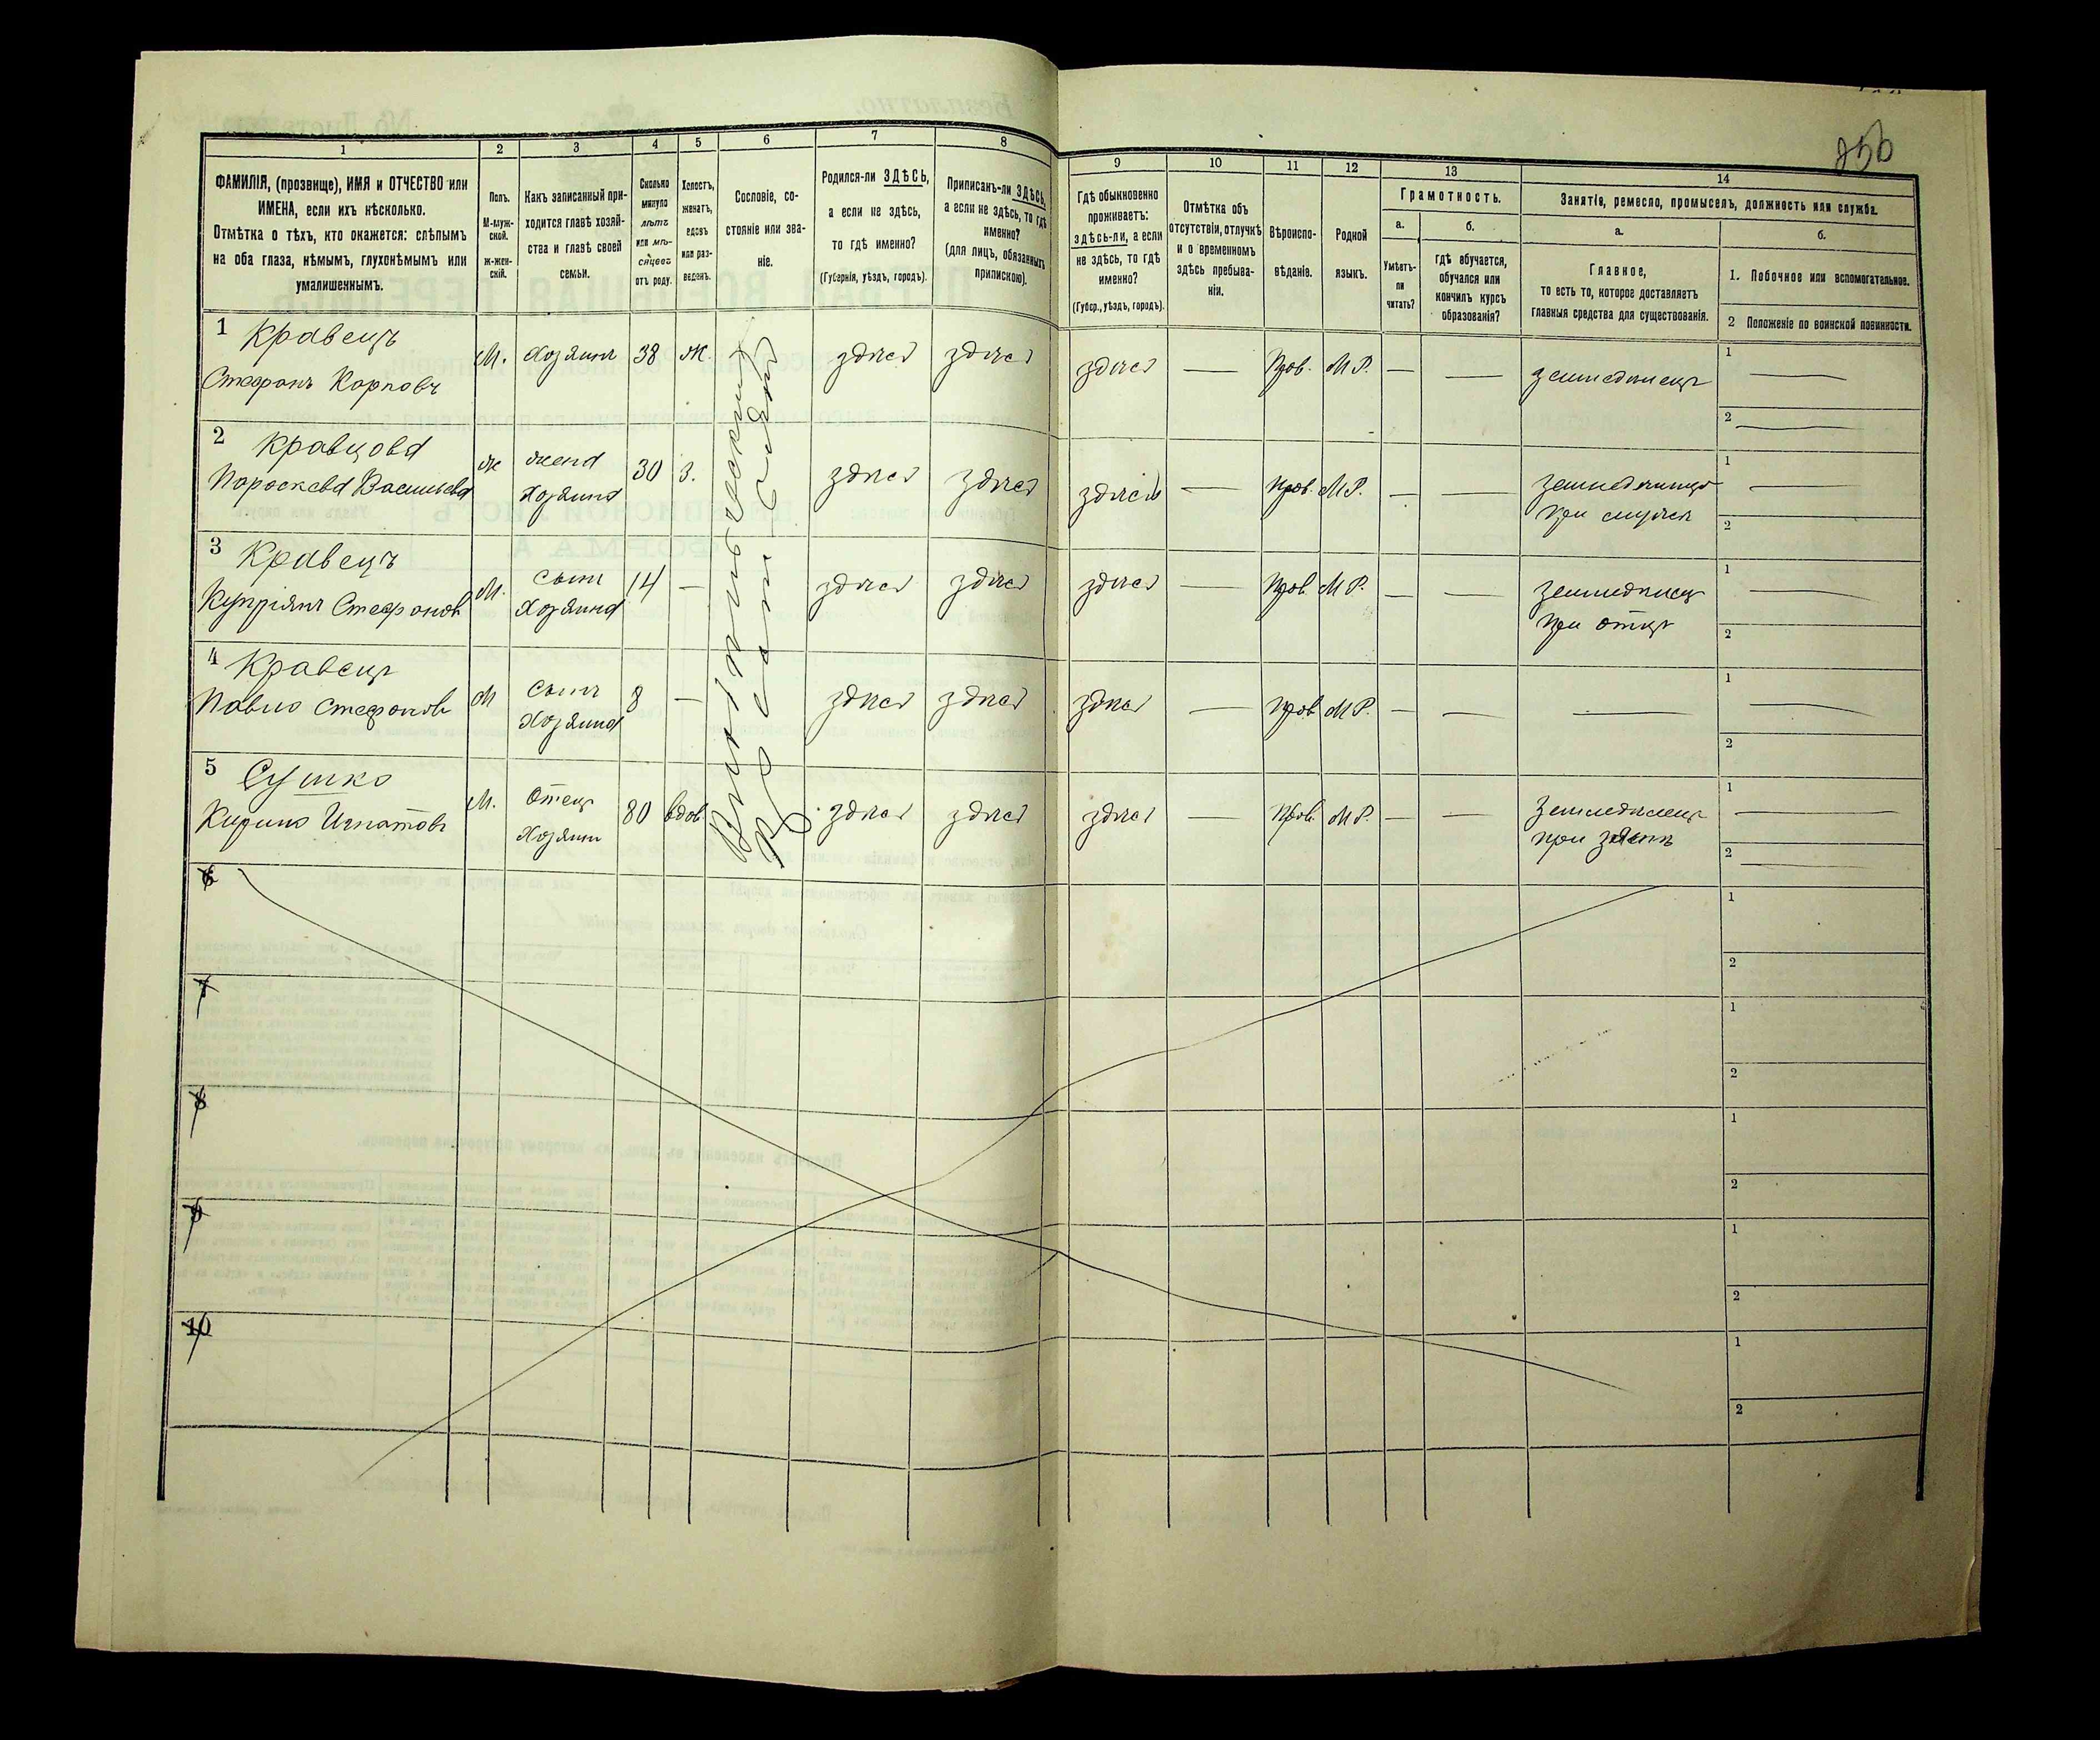 256
1 2 3 4 5 6 7 8 9 10 11 12 13 14
ФАМИЛІЯ, (прозвище), ИМЯ и ОТЧЕСТВО или
ИМЕНА, если ихъ нѣсколько.
Отмѣтка о тѣхъ, кто окажется: слѣпымъ
на оба глаза, нѣмымъ, глухонѣмымъ или
умалишеннымъ.
Полъ.
М-муж-
ской.
ж-жен-
скій.
Какъ записанный при-
ходится главѣ хозяй-
ства и главѣ своей
семьи.
Сколько
минуло
лѣтъ
или мѣ-
сяцевъ
отъ роду.
Холостъ,
женатъ,
вдовъ
или раз-
веденъ.
Сословіе, со-
стояніе или зва-
ніе.
Родился-ли ЗДѢСЬ,
а если не здѣсь,
то гдѣ именно?
(Губернія, уѣздъ, городъ).
Приписанъ-ли ЗДѢСЬ,
а если не здѣсь, то гдѣ
именно?
(для лицъ, обязанныхъ
припискою).
Гдѣ обыкновенно
проживаетъ:
здѣсь-ли, а если
не здѣсь, то гдѣ
именно?
(Губер., уѣздъ, городъ).
Отмѣтка объ
отсутствіи, отлучкѣ
и о временномъ
здѣсь пребыва-
ніи.
Вѣроиспо-
вѣданіе.
Родной
языкъ.
Грамотность.
а.
Умѣетъ-
ли
читать?
б.
гдѣ обучается,
обучался или
кончилъ курсъ
образованія?
Занятіе, ремесло, промыселъ, должность или служба.
а.
Главное,
то есть то, которое доставляетъ
главныя средства для существованія.
б.
1. Побочное или вспомогательное.
2 Положеніе по воинской повинности.
1 Кравецъ
Стефанъ Карповъ
М. Хозяинъ 38 Ж. здѣсь здѣсь здѣсь — Прав. М.Р. — — земледѣлецъ
1 —
2 —
2 Кравцова
Параскева Васильева
ж жена
хозяина
30 З. здѣсь здѣсь здѣсь — Прав. М.Р. — —
при мужѣ
1 —
2
3 Кравецъ
Купріянъ Стефановъ
М. сынъ
хозяина
14 — здѣсь здѣсь здѣсь — Прав. М.Р. — — земледѣлецъ
при отцѣ
1 —
2
4 Кравецъ
Павло Стефановъ
М сынъ
хозяина
8 — здѣсь здѣсь здѣсь — Прав. М.Р. — — —
1 —
2
5 Сушко
Кирило Игнатовъ
М. Отецъ
80 вдов. здѣсь здѣсь здѣсь — Прав. М.Р. — — Земледѣлецъ
при зятѣ
1 —
2 —
6
1
2
7
1
2
8
1
2
9
1
2
10
1
2